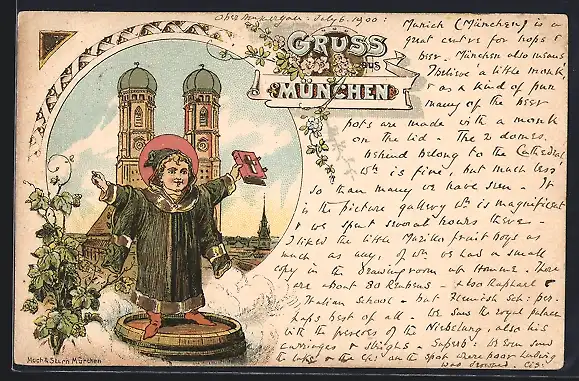 Ober Ammergau: July 6. 1900:
GRUSS
aus
MÜNCHEN
Munich (München) is a
great centre for hops &
beer. München also means
I believe a little monk,
& as a kind of pun
many of the beer
pots are made with a monk
on the lid - The 2 domes
behind belong to the Cathedral
wh is fine, but much less
so than many we have seen - It
is the picture gallery wh is magnificent
& we spent several hours there -
I liked the little Murillo fruit boys as
much as any, of wh we had a small
copy in the drawing room at There
are about 80 Rubens - also Raphael &
Italian School - but Flemish Sch: per-
haps best of all - We saw the royal palace
with the frescoes of the Niebelung, also his
carriages & sleighs - Superb: We even saw
the lake & the on the spot where poor Ludwig
was drowned.
Moch & Stern München